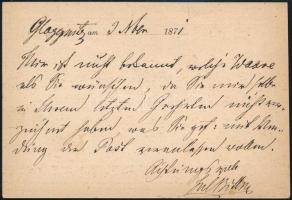 Gloggnitz am 3 Nber 1871
Mir ist nicht bekannt, welche Waare
als Sie wünschen, da Sie mir selbe
in Ihrem letzten Geehrten nicht ver-
zeichnet haben, was Sie gef: mit
der Post veranlassen wollen.
Achtungsvoll